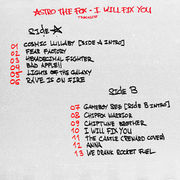 ASTRO THE FOX - I WILL FIX YOU
TRACKLIST
SIDE A
01 COSMIC LULLABY [SIDE A INTRO]
02 FEAR FACTORY
03 HEXADECIMAL FIGHTER
04 BAD APPLE!!
05 LIGHTS OF THE GALAXY
06 RAVE IS ON FIRE
SIDE B
07 GAMEBOY RGB [SIDE B INTRO]
08 CHIPFOX WARRIOR
09 CHIPTUNE BROTHER
10 I WILL FIX YOU
11 THE CASTLE (TENNARD COVER)
12 ANNA
13 WE DRANK ROCKET FUEL